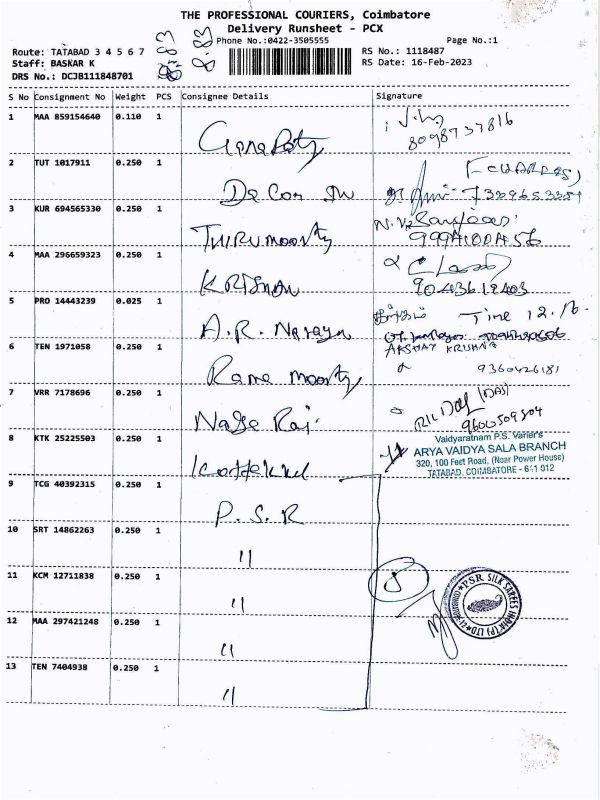 THE PROFESSIONAL COURIERS, Coimbatore
Delivery Runsheet - PCX
Phone No.:0422-3505555
Page No.:1
Route: TATABAD 3 4 5 6 7
RS No.: 1118487
Staff: BASKAR K
RS Date: 16-Feb-2023
DRS No.: DCJB111848701
S No Consignment No Weight PCS Consignee Details Signature
1 MAA 859154640 0.110 1
8098737816
2 TUT 1017911 0.250 1
3 KUR 694565330 0.250 1 Thirumoorty
4 MAA 296659323 0.250 1 KRISHNAN
9043619403
5 PRO 14443239 0.025 1 A.R. Narayan Time 12.16.
AKSHAY KRUSHNA
6 TEN 1971058 0.250 1 Rama moorty 9360426181
7 VRR 7178696 0.250 1 Nage Raj.
9600509804
8 KTK 25225503 0.250 1
Vaidyaratnam P.S. Varier's
ARYA VAIDYA SALA BRANCH
320, 100 Feet Road, (Near Power House)
TATABAD, COIMBATORE - 641 012
9 TCG 40392315 0.250 1 P.S.R
10 SRT 14862263 0.250 1 "
11 KCM 12711838 0.250 1 " 5
PSR SILK SAREES INDIA (P) LTD
12 MAA 297421248 0.250 1 "
13 TEN 7404938 0.250 1 "